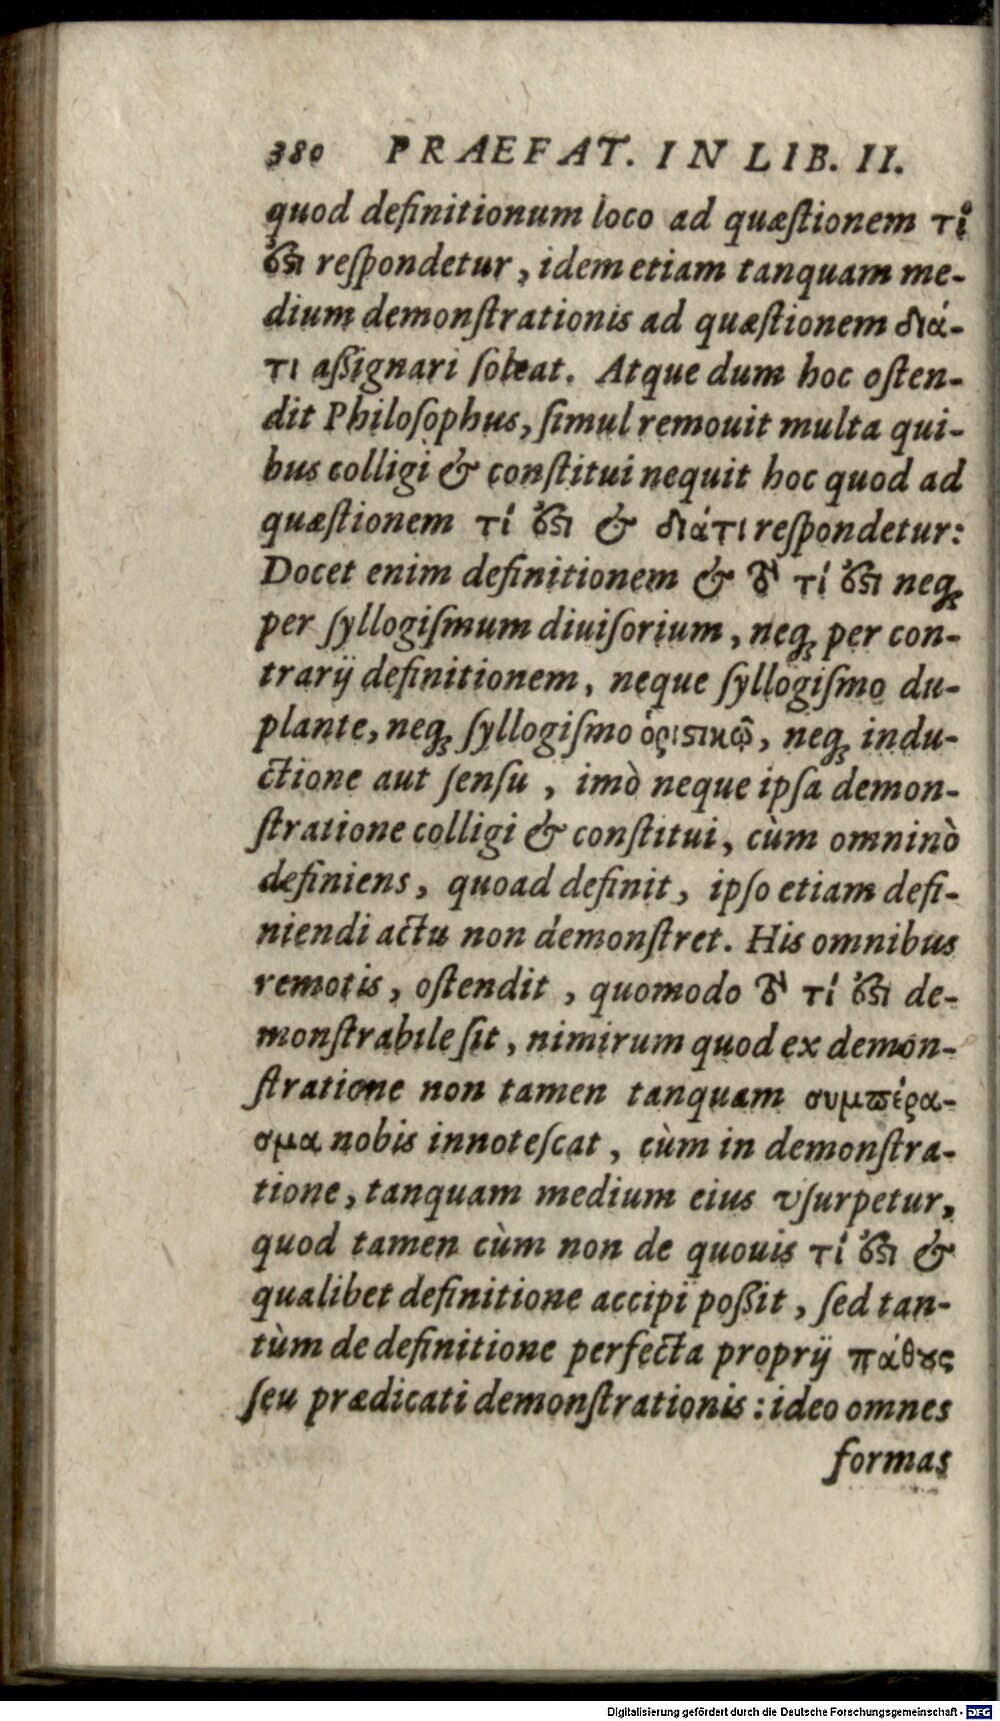 380 PRAEFAT. IN LIB. II.
quod definitionum loco ad quæſtionem τί
ἐϛι reſpondetur, idem etiam tanquam me-
dium demonſtrationis ad quæſtionem διά-
τι aßignari ſoleat. Atque dum hoc oſten-
dit Philoſophus, ſimul remouit multa qui-
bus colligi & conſtitui nequit hoc quod ad
quæſtionem τί ἐϛι & διάτι reſpondetur:
Docet enim definitionem & τὸ τί ἐϛι neq;
per ſyllogiſmum diuiſorium, neq; per con-
trarij definitionem, neque ſyllogiſmo du-
plante, neq; ſyllogiſmo ὁριϛικῷ, neq; indu-
ctione aut ſenſu, imò neque ipſa demon-
ſtratione colligi & conſtitui, cùm omninò
definiens, quoad definit, ipſo etiam defi-
niendi actu non demonſtret. His omnibus
remotis, oſtendit, quomodo τὸ τί ἐϛι de-
monſtrabile ſit, nimirum quod ex demon-
ſtratione non tamen tanquam συμπέρα-
σμα nobis innoteſcat, cùm in demonſtra-
tione, tanquam medium eius vſurpetur,
quod tamen cùm non de quouis τί ἐϛι &
qualibet definitione accipi poßit, ſed tan-
tùm de definitione perfecta proprij πάθȣς
ſeu prædicati demonſtrationis: ideo omnes
formas
Digitalisierung gefördert durch die Deutsche Forschungsgemeinschaft - DFG